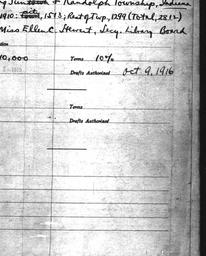 + Randolph Township, Indiana
1910: city, 1513; Rest of Twp, 1299 (Total, 2812)
Miss Ellen C. Stewart, Secy. Library Board
10,000 Terms 10%
Drafts Authorized Oct 9, 1916
Terms
Drafts Authorized
Terms
Drafts Authorized